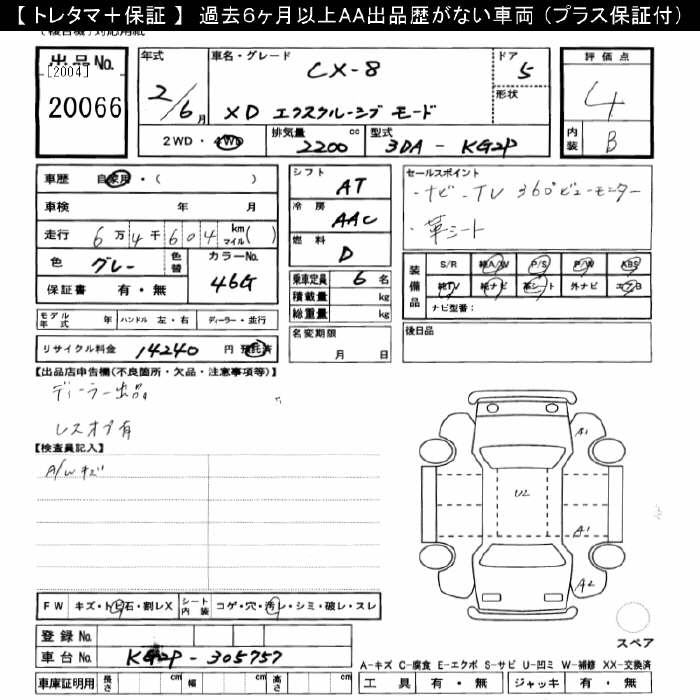 【 トレタマ＋保証 】 過去6ヶ月以上AA出品歴がない車両（プラス保証付）
出品No.
[2004]
20066
年式
2/6月
車名・グレード
CX-8
XD エクスクルーシブ モード
ドア
5
形状
評価点
4
内装
B
2WD・4WD
排気量
2200 cc
型式
3DA - KG2P
車歴 自家用・( )
車検 年 月
走行 6万4千604 km マイル( )
色 グレー 色替
カラーNo. 46G
保証書 有・無
シフト AT
冷房 AAC
燃料 D
乗車定員 6 名
積載量 kg
総重量 kg
名変期限
月 日
セールスポイント
・ナビ・TV 360°ビューモニター
・革シート
装備品
S/R 純A/W P/S P/W ABS
純TV 純ナビ 革シート 外ナビ エアB
ナビ型番：
後日品
モデル年式 年 ハンドル 左・右 ディーラー・並行
リサイクル料金 14240 円 預託済
【出品店申告欄(不良箇所・欠品・注意事項等)】
ディーラー出品
レスオプ有
【検査員記入】
A/Wキズ
A1
U2
A1
A2
スペア
FW キズ・トビ石・割レX シート内装 コゲ・穴・汚レ・シミ・破レ・スレ
登録No.
車台No. KG2P-305757
車庫証明用 長さ cm 幅 cm 高さ cm
A-キズ C-腐食 E-エクボ S-サビ U-凹ミ W-補修 XX-交換済
工具 有・無 ジャッキ 有・無